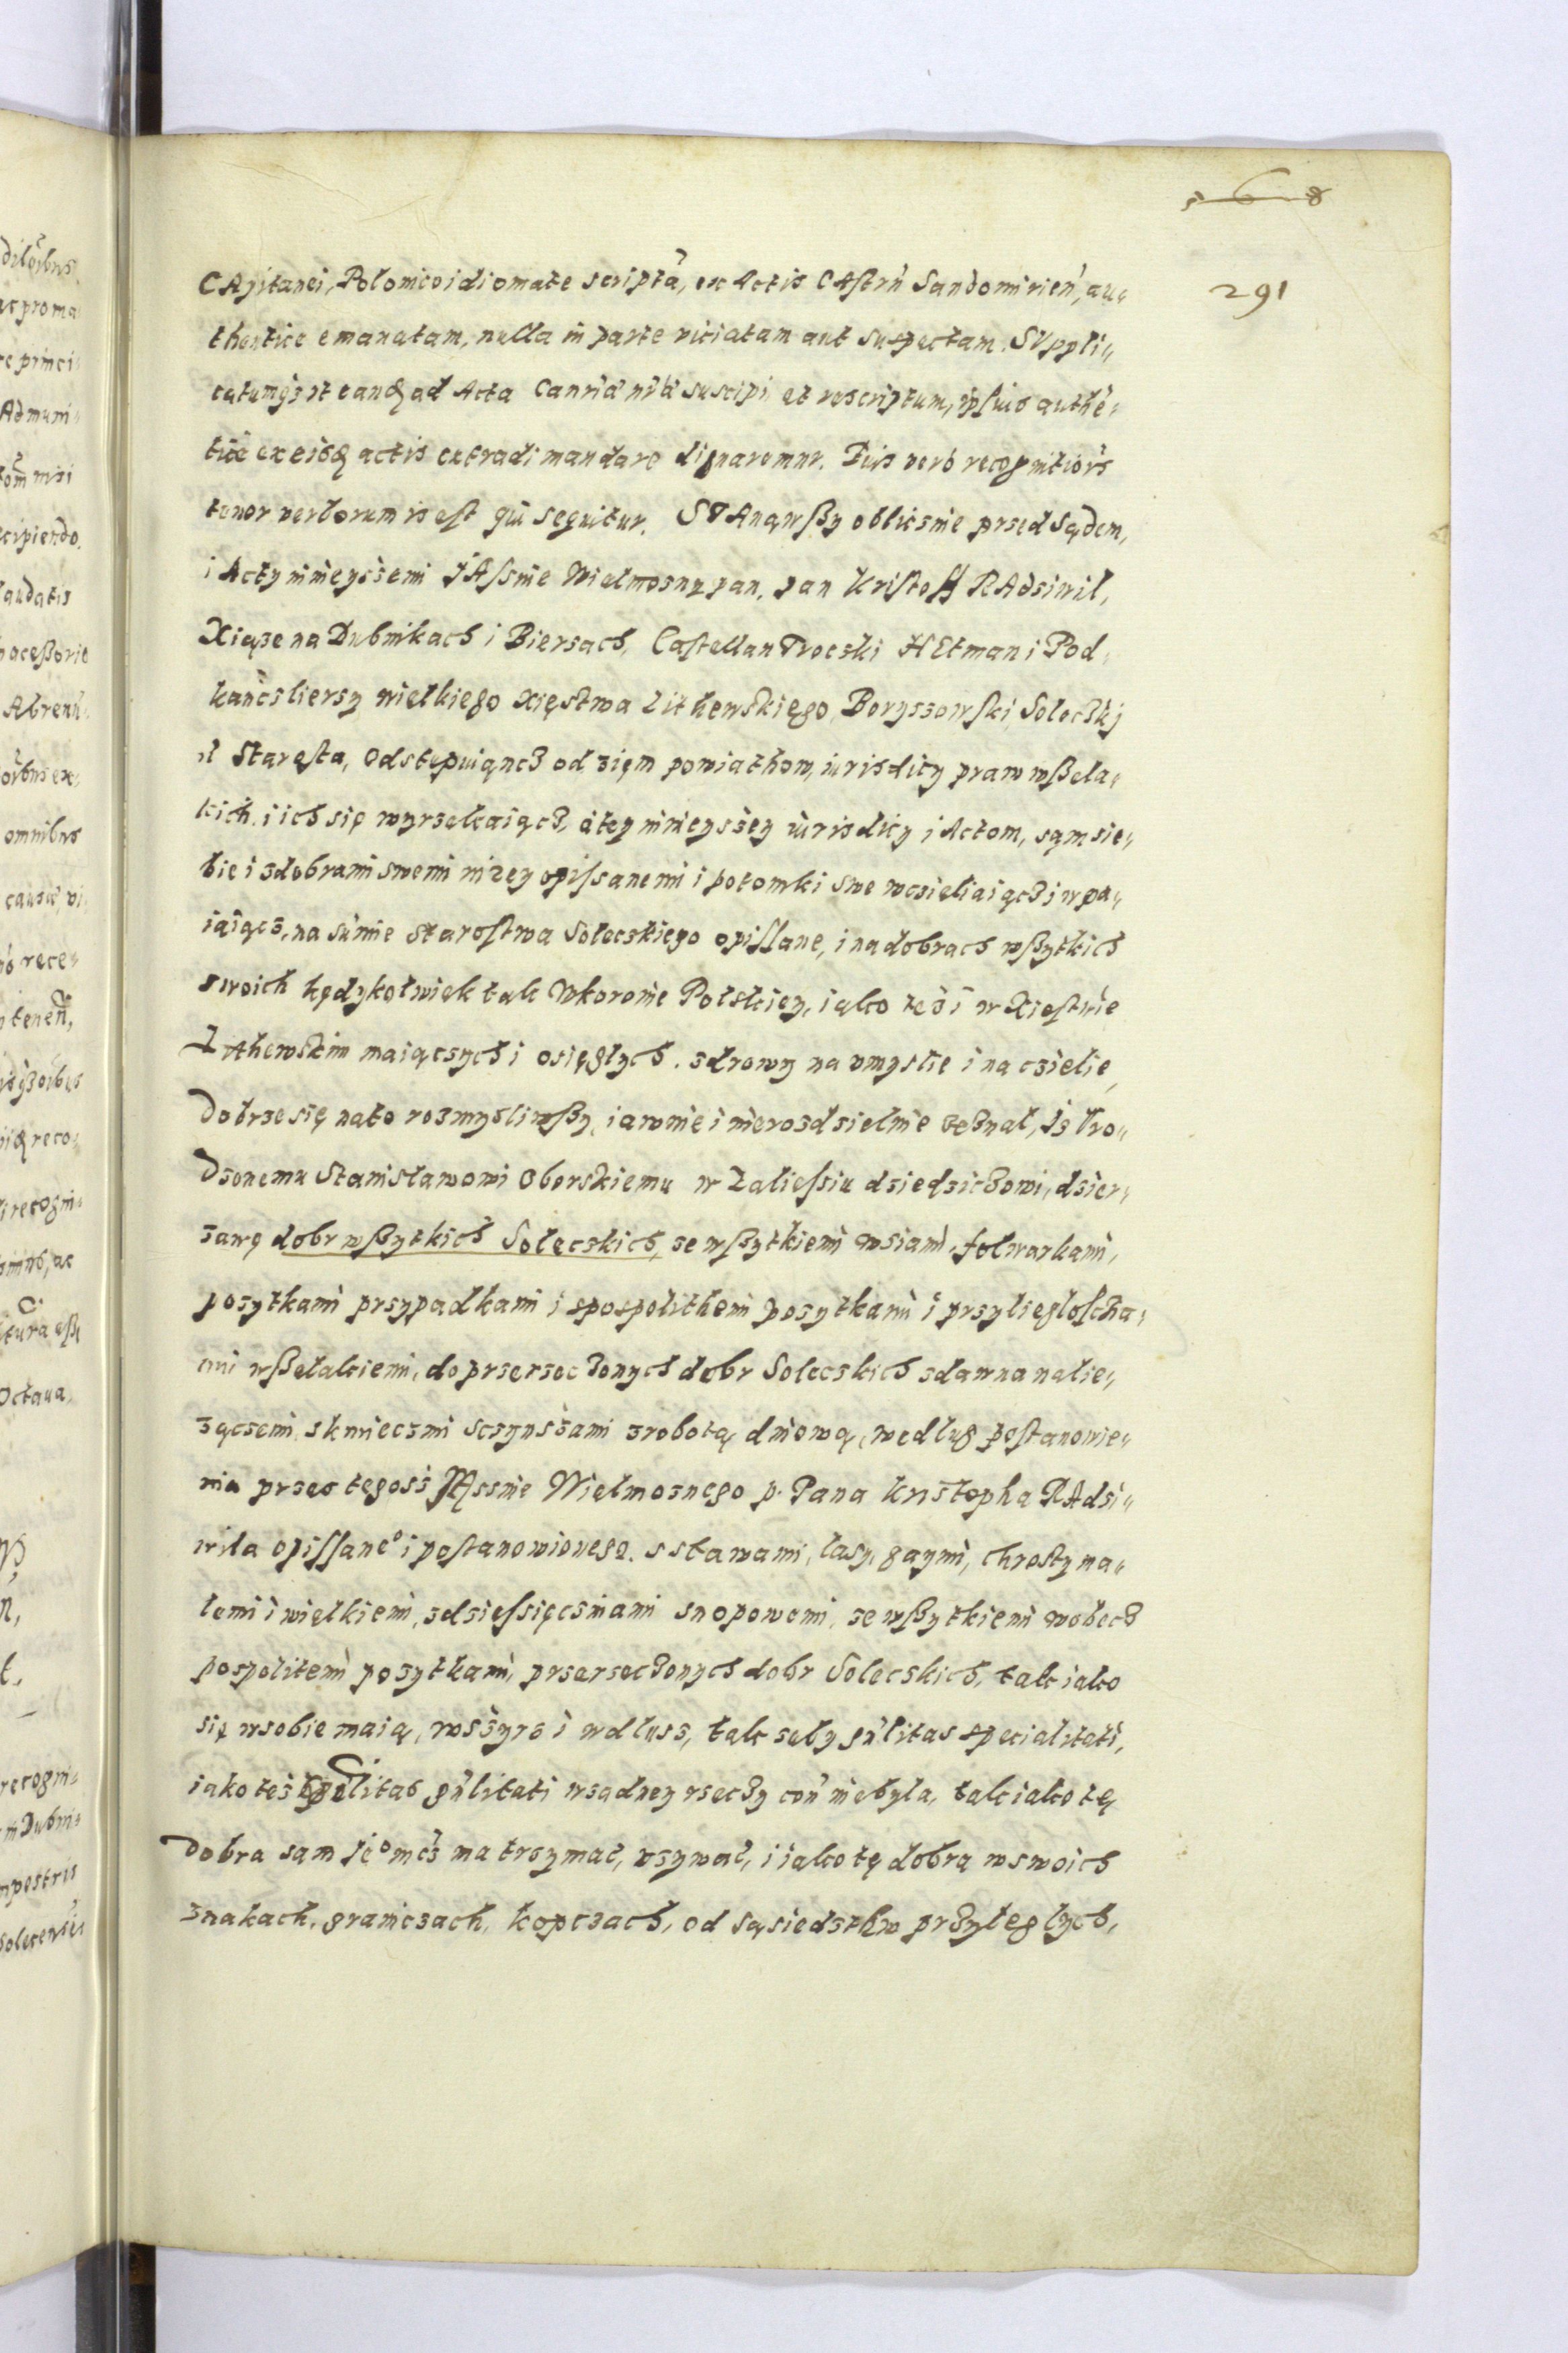 568
291
CApitanei, Polonico idiomate scriptā, ex Actis CAstrn̄ Sandomirień, au„
thentice emanatam, nulla in parte viciatam aut suspectam. SVppli„
catumqз vt eandȩ ad Acta Canriæ nr̄æ suscipi et rescriptum, ipsius authē„
ticē ex eisdȩ actis extradi mandare dignaremur. Cuius verò recognitiōis
tenor verborum is est qui sequitur. STAnąwßy oblicznie przed Sądem,
i Acty ninieyszemi JAsnie Wielmozny pan, pan Kristoff RAdziwil,
Xiąze na Dubinkach i Bierzach, Castellan Trocski HEtman i Pod„
kanczlierzy wielkiego Xięstwa Lithewskięgo, Boryszowski, Solecskj
etc Starosta, Odstępuiąncz od ziem powiathow, iurisdicy praw wßela„
kich, i ich się wyrzekaiącz, á tey ninieyszey iurisdicy i Actom, sąm sie„
bie i z dobrami swemi nizey opissanemi i potomki swe wcieliaiącz i wpa„
iaiącz, na sūmie Starostwa Solecskiego opissane, i na dobrach wßytkich
swoich kędykolwięk tak w koronie Polskiey, iako też i w Xięstwie
LIthewskim maiączych i osięglych. zdrowy na vmyslie i na czielie,
Dobrze się nato rozmysliwßy, iawnie i nierozdzielnie zeznal, Iż Vro„
dzonemu Stanislawowi Oborskiemu w Zaliessiu dziedziczowi, dzier„
zawę dobr wßytkich Solecskich, ze wßytkiemi wsiami, folwarkami,
pozytkami przypadkami i zpospolithemi pozytkami i przyliegloscha„
mi wßelakiemi, do przerzeczonych dobr Solecskich zdawna nalie„
zączemi, z kmieczmi z czynszami z robotą dniową, według postanowie„
nia przez tegosz JAssnie Wielmoznego p. Pana Kristopha RAdzi„
wila opissaneo i postanowionego. z stawami, lasy, gaymi, chrosty ma„
lemi i wielkiemi, z dziessięczinami snopowemi, ze wßytkiemi wobecz
pospolitemi pozytkami, przerzeczonych dobr Solecskich, tak iako
się w sobie maią, wszyrz i wdluss, tak zeby gn̄litas specialitati,
iako tesz spelitas gn̄litati w zadney rzeczy con̄ niebyla, tak iako tę
Dobra sam Jeo mcz ma trzymac, vzywac, i iako tę dobrą w swoich
znakach, granicach, kopczach, od sąsiedzthw przyleglych,